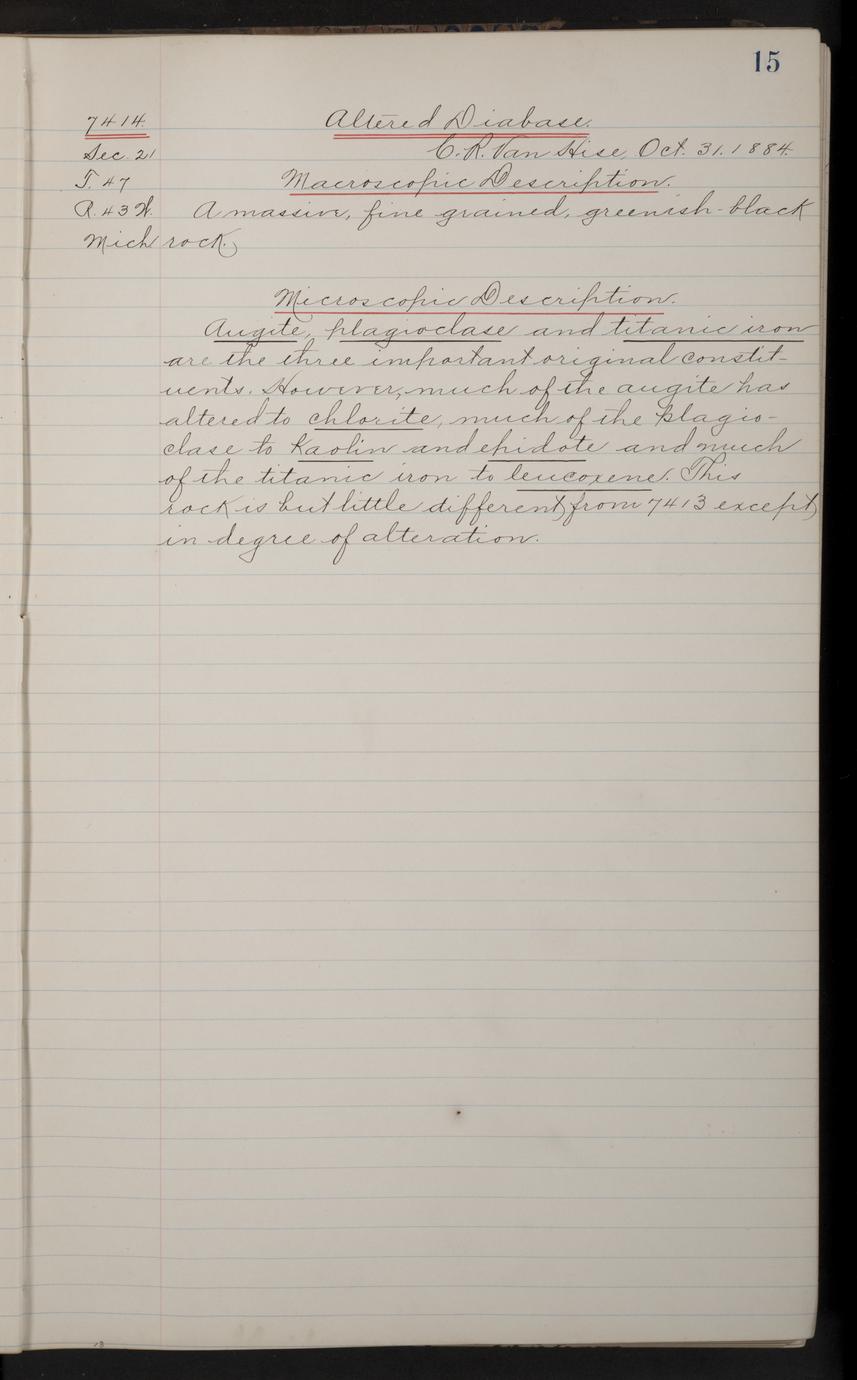 15
7414. Altered Diabase.
Sec. 21 C. R. Van Hise, Oct. 31. 1884.
T. 47 Macroscopic Description.
R. 43 W. A massive, fine grained, greenish-black
Mich rock.
Microscopic Description.
Augite, plagioclase and titanic iron
are the three important original constit-
uents. However, much of the augite has
altered to chlorite, much of the plagio-
clase to kaolin and epidote and much
of the titanic iron to leucoxene. This
rock is but little different from 7413 except
in degree of alteration.